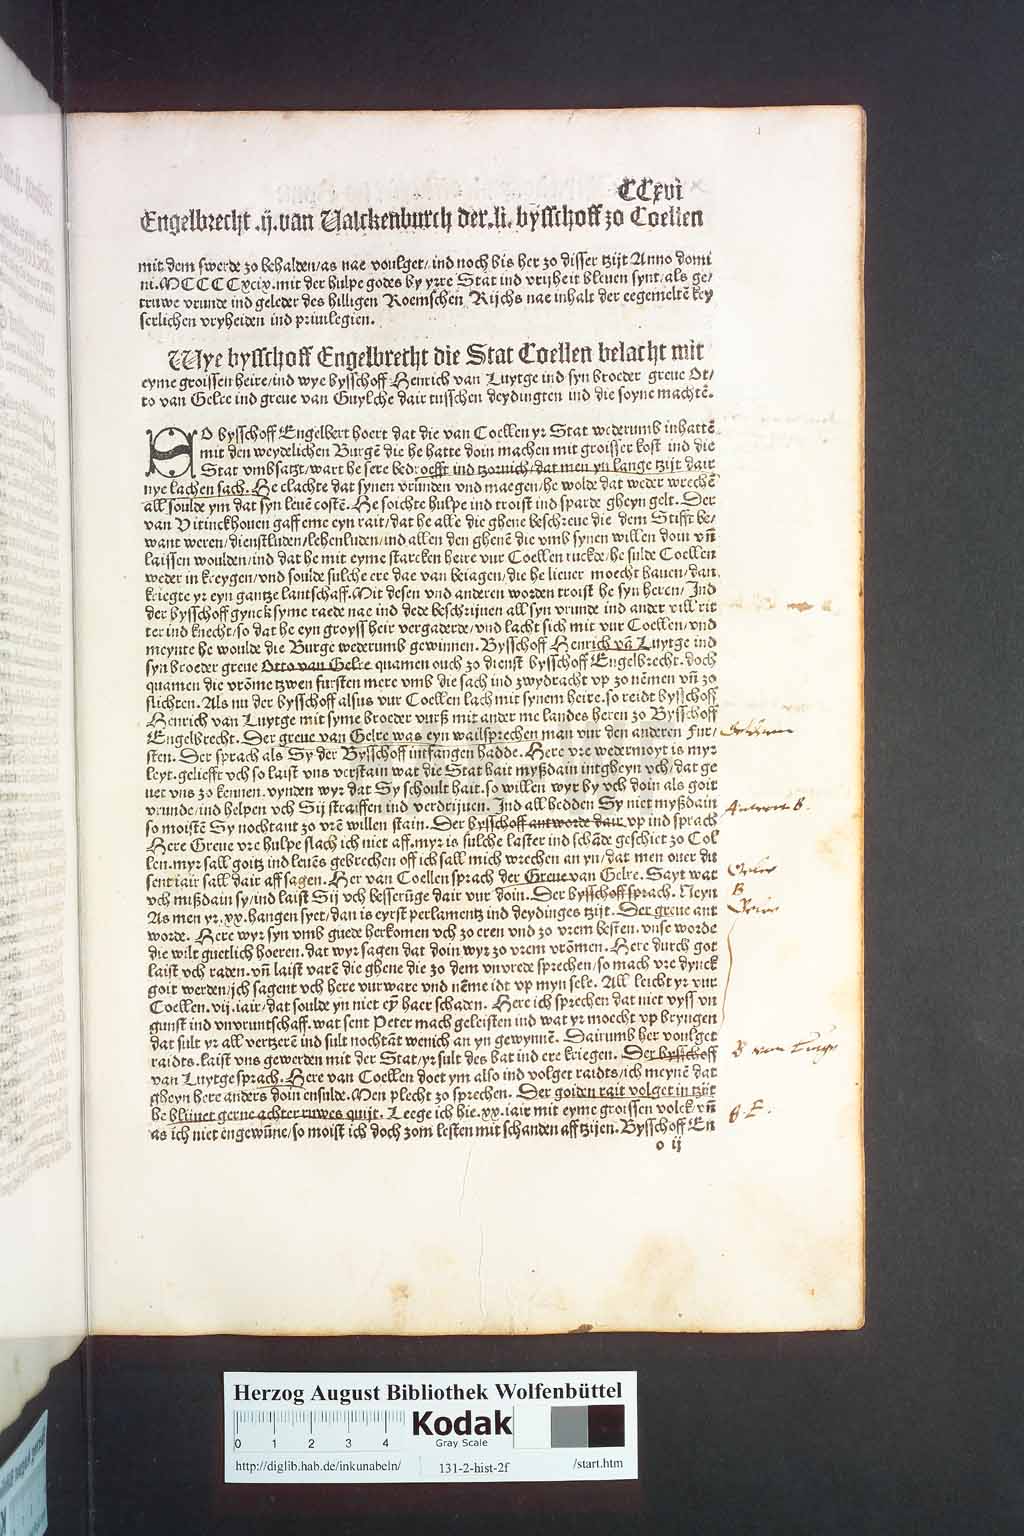 CCxvi
Engelbrecht .ij. van Valckenburch der .li. bysschoff zo Coellen
mit dem swerde zo behalden/as nae voulget/ ind noch bis her zo disser tzijt Anno domi
ni.MCCCCxcix.mit der hulpe godes by yrre Stat ind vrijheit bleuen synt.als ge/
truwe vrunde ind geleder des hilligen Roemschen Rijchs nae inhalt der eegemeltē key
serlichen vryheiden ind priuilegien.
Wye bysschoff Engelbrecht die Stat Coellen belacht mit
eyme groissen heire/ind wye bysschoff Henrich van Luytge ind syn broeder greue Ot/
to van Gelre ind greue van Guylche dair tusschen deydingten ind die soyne machtē.
SO bysschoff Engelbert hoert dat die van Coellen yr Stat wederumb inhattē
mit den weydelichen Burgē die he hatte doin machen mit groisser kost ind die
Stat vmbsatzt/wart he sere bedroefft ind tzornich/dat men yn lange tzijt dair
nye lachen sach. He clachte dat synen vrunden vnd maegen/he wolde dat weder wrechē
all soulde ym dat syn leuē costē. He soichte hulpe ind troist ind sparde gheyn gelt. Der
van Vitinckhouen gaff eme eyn rait/dat he alle die ghene beschreue die dem Stifft be/
want weren/dienstluden/lehenluden/ind allen den ghenē die vmb synen willen doin vn̄
laissen woulden/ind dat he mit eyme starcken heire vur Coellen ruckde/he sulde Coellen
weder in kreygen/vnd soulde sulche ere dae van beiagen/die he lieuer moecht hauen/dan
kriegte yr eyn gantze lantschaff.Mit desen vnd anderen worden troist he syn heren/Ind
der bysschoff gynck syme raede nae ind dede beschrijuen all syn vrunde ind ander vill rit
ter ind knecht/so dat he eyn groyss heir vergaderde/vnd lacht sich mit vur Coellen/vnd
meynte he woulde die Burge wederumb gewinnen. Bysschoff Henrich vā Luytge ind
syn broeder greue Otto van Gelre quamen ouch zo dienst bysschoff Engelbrecht.doch
quamen die vrōme tzwen fursten mere vmb die sach ind zwydracht vp zo nēmen vn̄ zo
slichten. Als nu der bysschoff alsus vur Coellen lach mit synem heire.so reidt bysschoff
Henrich van Luytge mit syme broeder vurß mit ander me landes heren zo Bysschoff
Engelbrecht. Der greue van Gelre was eyn wailsprechen man vur den anderen fur/
sten. Der sprach als Sy der Bysschoff intfangen hadde. Here vre wedermoyt is myr
leyt.geliefft vch so laist vns verstain wat die Stat hait myßdain intgheyn vch/dat ge
uet vns zo kennen.vynden wyr dat Sy schoult hait.so willen wyr by vch doin als goit
vrunde/ind helpen vch Sij straiffen ind verdrijuen. Ind all hedden Sy niet myßdain
so moistē Sy nochtant zo vrē willen stain. Der bysschoff antworde dair vp ind sprach
Here Greue vre hulpe slach ich niet aff.myr is sulche laster ind schāde geschiet zo Col
len.myr sall goitz ind leuēs gebrechen off ich sall mich wrechen an yn/dat men ouer du
sent iair sall dair aff sagen. Her van Coellen sprach der Greue van Gelre. Sayt wat
vch mißdain sy/ind laist Sij vch besserūge dair vur doin. Der bysschoff sprach. Neyn
As men yr.xx.hangen syet/dan is eyrst perlamentz ind deydinges tzijt. Der greue ant
worde. Here wyr syn vmb guede herkomen vch zo eren vnd zo vrem besten.vnse worde
die wilt guetlich hoeren.dat wyr sagen dat doin wyr zo vrem vrōmen. Here durch got
laist vch raden.vn̄ laist varē die ghene die zo dem vnvrede sprechen/so mach vre dynck
goit werden/ich sagent vch here vurware vnd nēme idt vp myn sele. All leicht yr vur
Coellen.vij.iair/dat soulde yn niet eȳ haer schaden. Here ich sprechen dat niet vyss vn
gunst ind vnvruntschaff.wat sent Peter mach geleisten ind wat yr moecht vp bryngen
dat sult yr all vertzerē ind sult nochtāt wenich an yn gewynnē. Dairumb her voulget
raidts.laist vns gewerden mit der Stat/yr sult des bat ind ere kriegen. Der bysschoff
van Luytge sprach. Here van Coellen doet ym also ind volget raidts/ich meynē dat
gheyn here anders doin ensulde.Men plecht zo sprechen. Der goiden rait volget in tzijt
he blijuet gerne achter ruwes quijt. Leege ich hie.xx.iair mit eyme groissen volck vn̄
as ich niet engewūne/so moist ich doch zom lesten mit schanden aff tzijen. Bysschoff En
o ij
Antwort B.
B
B van Luyg
B. E.
Herzog August Bibliothek Wolfenbüttel
0 1 2 3 4
Kodak
Gray Scale
http://diglib.hab.de/inkunabeln/ 131-2-hist-2f /start.htm